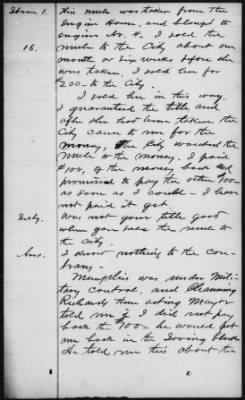 Item 1. This mule was taken from the
Engin House, and belongd to
engin No. 4. I sold the
16. mule to the City about one
month or six weeks before she
was taken, I sold her for
$200- to the City.
I sold her in this way.
I guaranteed the title and
after she had been taken the
City came to me for the
money, the City wanted the
mule or the money. I paid
$100, of the money back and
promised to pay the other 100-
as soon as I could - I have
not paid it yet.
Was not your title good
when you sold the mule to
the City.
Ans. I know nothing to the con-
trary.
Memphis was under Mili-
tary control, and Channing
Richards then acting Mayor
told me if I did not pay
back the $100- he would put
me back in the Irving block
He told me this about the